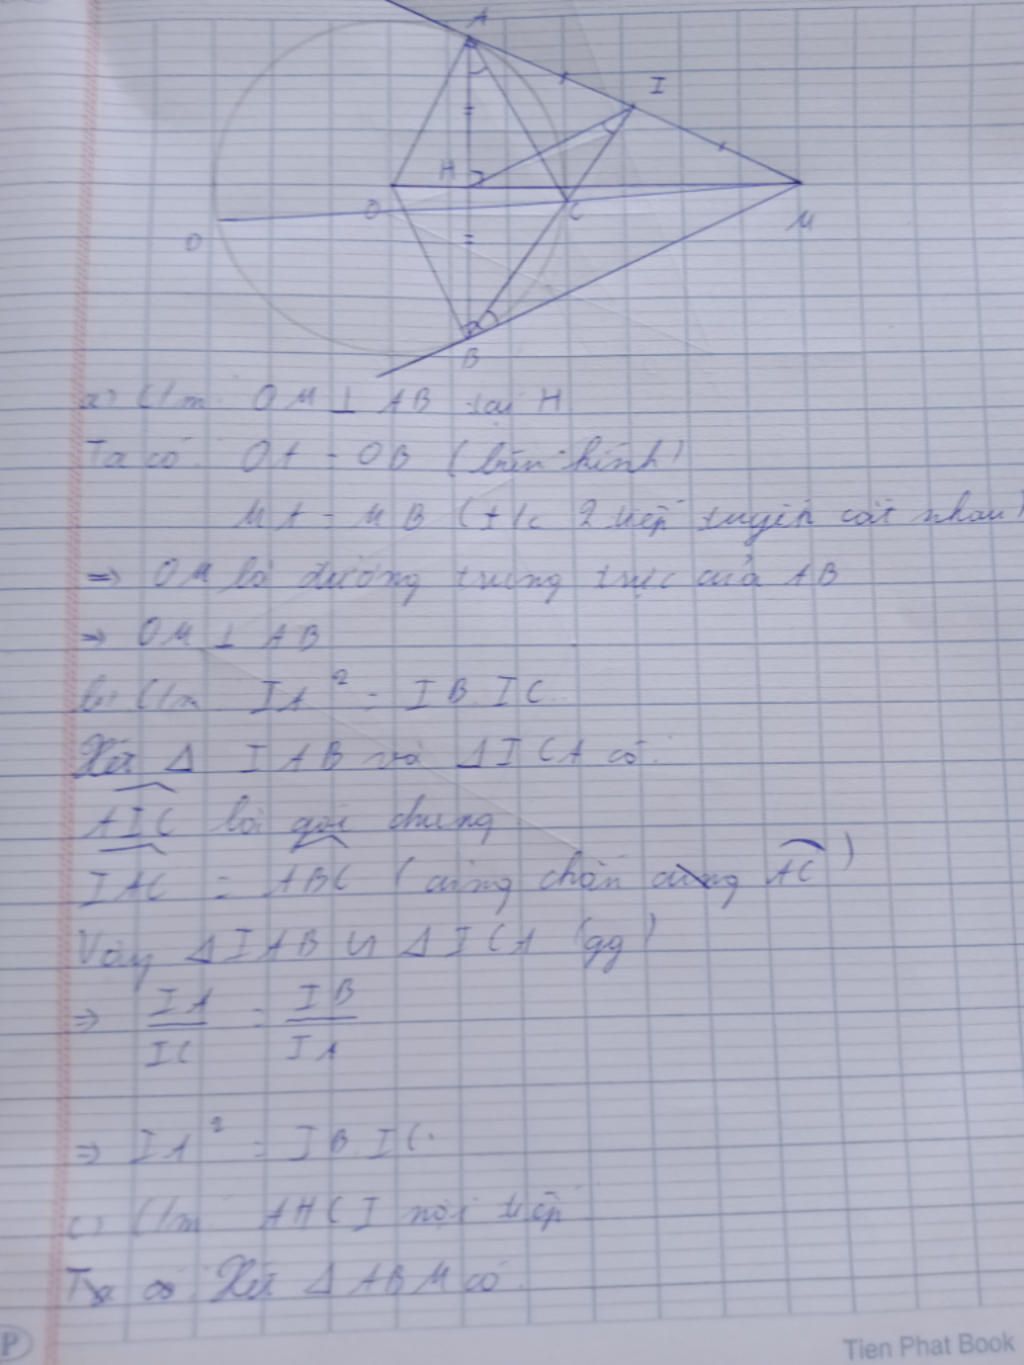 A
I
H
O
C
M
O
B
a) C/m: OM ⊥ AB tại H
Ta có: OA = OB (bán kính)
MA = MB (t/c 2 tiếp tuyến cắt nhau)
=> OM là đường trung trực của AB
=> OM ⊥ AB
b) C/m IA² = IB.IC
Xét Δ IAB và ΔICA có:
AIC là góc chung
IAC = ABC (cùng chắn cung AC)
Vậy ΔIAB ∽ ΔICA (gg)
=> IA/IC = IB/IA
=> IA² = IB.IC.
c) C/m: AHCI nội tiếp
Xét ΔABM có:
P
Tien Phat Book